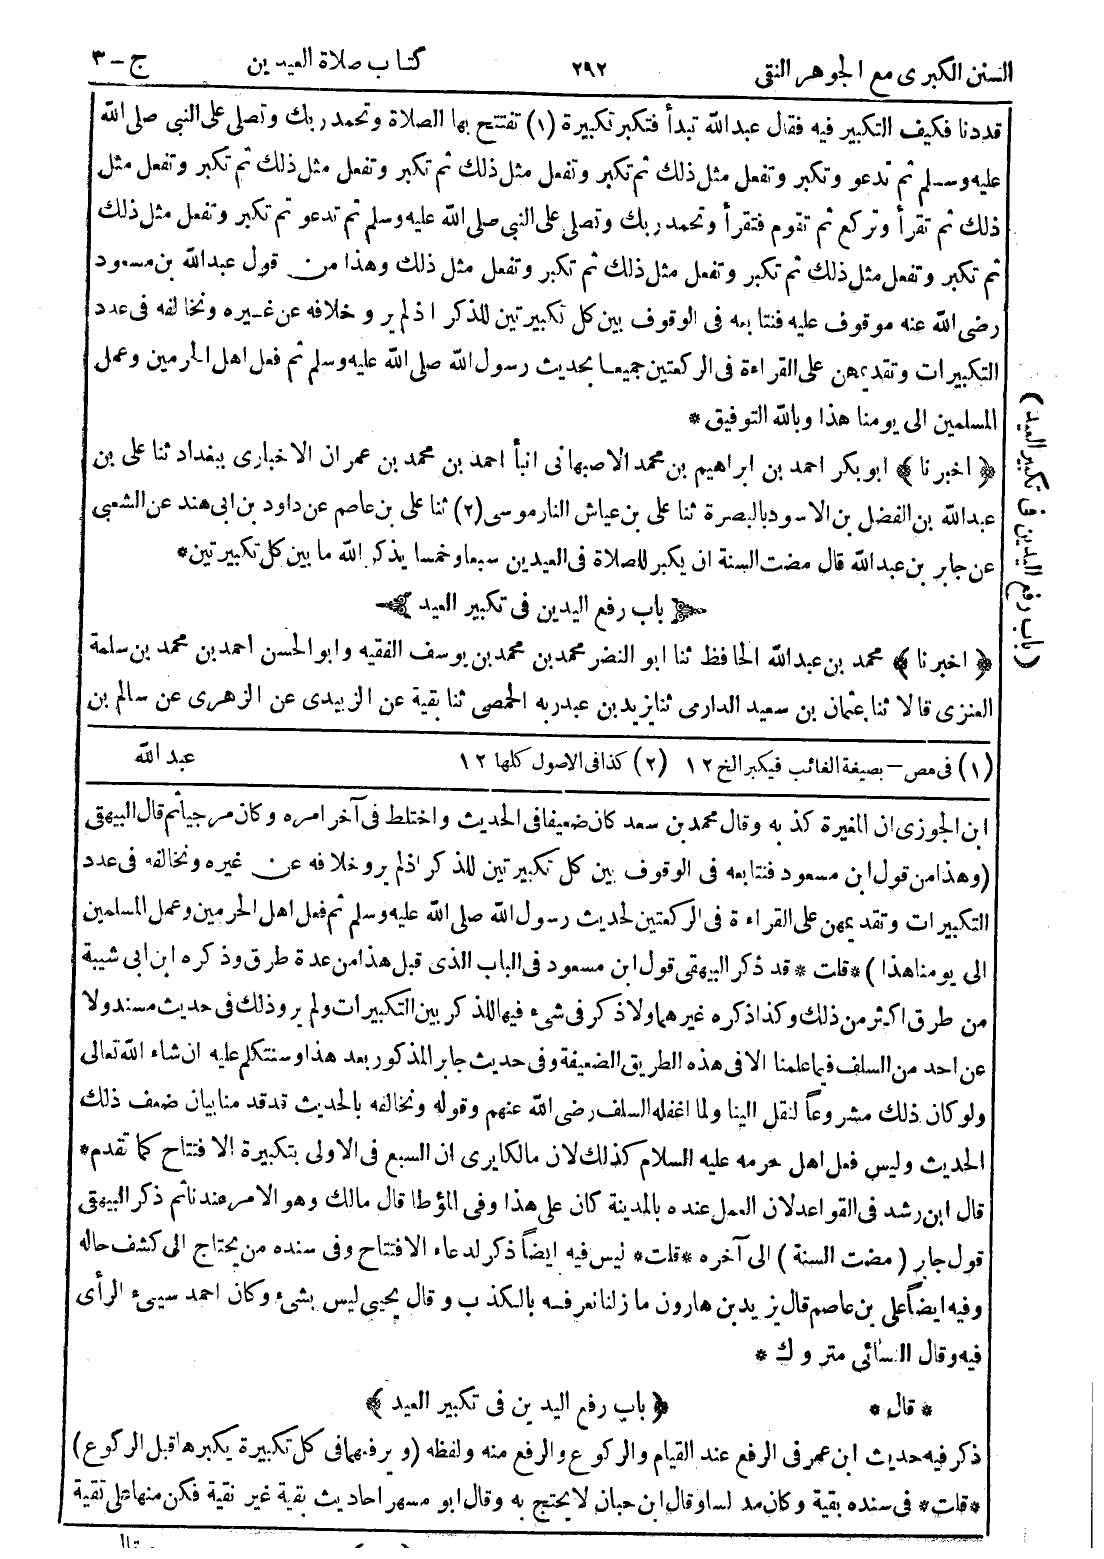 السنن الكبرى مع الجوهر النقى ٢٩٢ كتاب صلاة العيدين ج - ٣
قددنا فكيف التكبير فيه فقال عبدالله تبدأ فتكبر تكبيرة (١) تفتتح بها الصلاة وتحمد ربك وتصلى على النبى صلى الله
عليه وسلم ثم تدعو وتكبر وتفعل مثل ذلك ثم تكبر وتفعل مثل ذلك ثم تكبر وتفعل مثل ذلك ثم تكبر وتفعل مثل
ذلك ثم تقرأ وتركع ثم تقوم فتقرأ وتحمد ربك وتصلى على النبى صلى الله عليه وسلم ثم تدعو ثم تكبر وتفعل مثل ذلك
ثم تكبر وتفعل مثل ذلك ثم تكبر وتفعل مثل ذلك ثم تكبر وتفعل مثل ذلك وهذا من قول عبدالله بن مسعود
رضى الله عنه موقوف عليه فنتابعه فى الوقوف بين كل تكبيرتين للذكر اذلم يرو خلافه عن غيره ونخالفه فى عدد
التكبيرات وتقديمهن على القراءة فى الركعتين جميعا بحديث رسول الله صلى الله عليه وسلم ثم فعل اهل الحرمين وعمل
المسلمين الى يومنا هذا وبالله التوفيق *
﴿ اخبرنا ﴾ ابو بكر احمد بن ابراهيم بن محمد الاصبهانى انبأ احمد بن محمد بن عمران الاخبارى ببغداد ثنا على بن
عبدالله بن الفضل بن الاسود بالبصرة ثنا على بن عياش النارموسى (٢) ثنا على بن عاصم عن داود بن ابى هند عن الشعبى
عن جابر بن عبدالله قال مضت السنة ان يكبر للصلاة فى العيدين سبعا وخمسا يذكر الله ما بين كل تكبيرتين*
باب رفع اليدين فى تكبير العيد
(باب رفع اليدين فى تكبير العيد)
﴿ اخبرنا ﴾ محمد بن عبدالله الحافظ ثنا ابو النضر محمد بن محمد بن يوسف الفقيه وابو الحسن احمد بن محمد بن سلمة
العنزى قالا ثنا عثمان بن سعيد الدارمى ثنا يزيد بن عبد ربه الحمصى ثنا بقية عن الزبيدى عن الزهرى عن سالم بن
عبد الله
(١) فى مص - بصيغة الغائب فيكبر الخ ١٢ (٢) كذا فى الاصول كلها ١٢
ابن الجوزى ان المغيرة كذبه وقال محمد بن سعد كان ضعيفا فى الحديث واختلط فى آخر امره وكان مرجيا ثم قال البيهقى
(وهذا من قول ابن مسعود فنتابعه فى الوقوف بين كل تكبيرتين للذكر اذلم يرو خلافه عن غيره ونخالفه فى عدد
التكبيرات وتقديمهن على القراءة فى الركعتين لحديث رسول الله صلى الله عليه وسلم ثم فعل اهل الحرمين وعمل المسلمين
الى يومنا هذا) *قلت* قد ذكر البيهقى قول ابن مسعود فى الباب الذى قبل هذا من عدة طرق وذكره ابن ابى شيبة
من طرق اكثر من ذلك وكذا ذكره غيرهما ولا ذكر فى شىء فيها للذكر بين التكبيرات ولم يرو ذلك فى حديث مسند ولا
عن احد من السلف فيما علمنا الا فى هذه الطريق الضعيفة وفى حديث جابر المذكور بعد هذا وسنتكلم عليه ان شاء الله تعالى
ولو كان ذلك مشروعاً لنقل الينا ولما اغفله السلف رضى الله عنهم وقوله ونخالفه بالحديث قدقد منا بيان ضعف ذلك
الحديث وليس فعل اهل حرمه عليه السلام كذلك لان مالكا يرى ان السبع فى الاولى بتكبيرة الافتتاح كما تقدم*
قال ابن رشد فى القواعد لان العمل عنده بالمدينة كان على هذا وفى المؤطا قال مالك وهو الامر عندنا ثم ذكر البيهقى
قول جابر (مضت السنة) الى آخره *قلت* ليس فيه ايضاً ذكر لدعاء الافتتاح وفى سنده من يحتاج الى كشف حاله
وفيه ايضاً على بن عاصم قال يزيد بن هارون ما زلنا نعرفه بالكذب وقال يحيى ليس بشىء وكان احمد سيىء الرأى
فيه وقال النسائى متروك *
* قال * ﴿ باب رفع اليدين فى تكبير العيد ﴾
ذكر فيه حديث ابن عمر فى الرفع عند القيام والركوع والرفع منه ولفظه (ويرفعهما فى كل تكبيرة يكبرها قبل الركوع)
*قلت* فى سنده بقية وكان مدلسا وقال ابن حبان لا يحتج به وقال ابو مسهر احاديث بقية غير نقية فكن منها على تقية